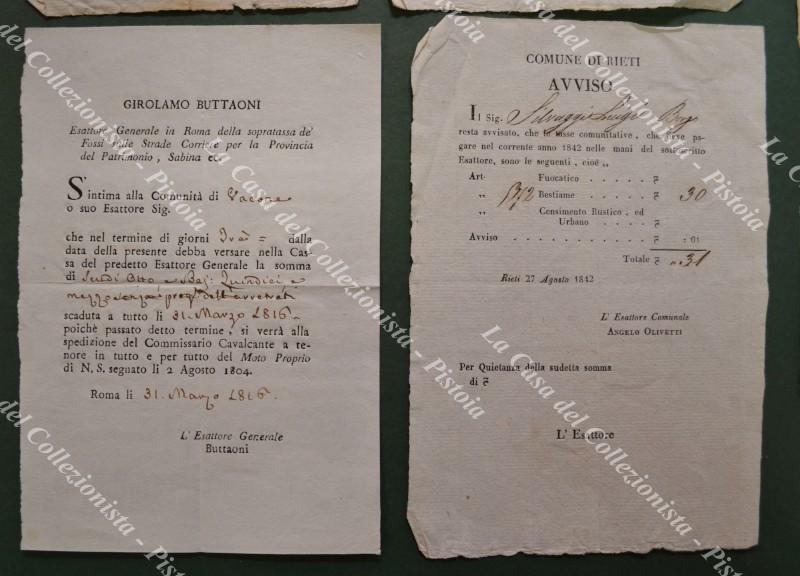 GIROLAMO BUTTAONI
Esattore Generale in Roma della sopratassa de'
Fossi sulle Strade Corriere per la Provincia
del Patrimonio, Sabina ec.
S'intima alla Comunità di Vacone
o suo Esattore Sig.
che nel termine di giorni Trè = dalla
data della presente debba versare nella Cas-
sa del predetto Esattore Generale la somma
di Scudi Otto e Baj: Quindici e
mezzo dell'arretrati
scaduta a tutto li 31. Marzo 1816.
poichè passato detto termine, si verrà alla
spedizione del Commissario Cavalcante a te-
nore in tutto e per tutto del Moto Proprio
di N. S. segnato li 2 Agosto 1804.
Roma li 31. Marzo 1816.
L' Esattore Generale
Buttaoni
COMUNE DI RIETI
AVVISO
Il Sig. Selvaggi Luigi
resta avvisato, che le tasse comunitative, che deve pa-
gare nel corrente anno 1842 nelle mani del sottoscritto
Esattore, sono le seguenti, cioè „
Art. Fuocatico . . . . . .
„ Bestiame . . . . . . 30
„ Censimento Rustico, ed
Urbano . . . . . .
Avviso . . . . . . . . . . . : 01
Totale 31
Rieti 27 Agosto 1842
L' Esattore Comunale
ANGELO OLIVETTI
Per Quietanza della sudetta somma
di
L' Esattore
La Casa del Collezionista - Pistoia